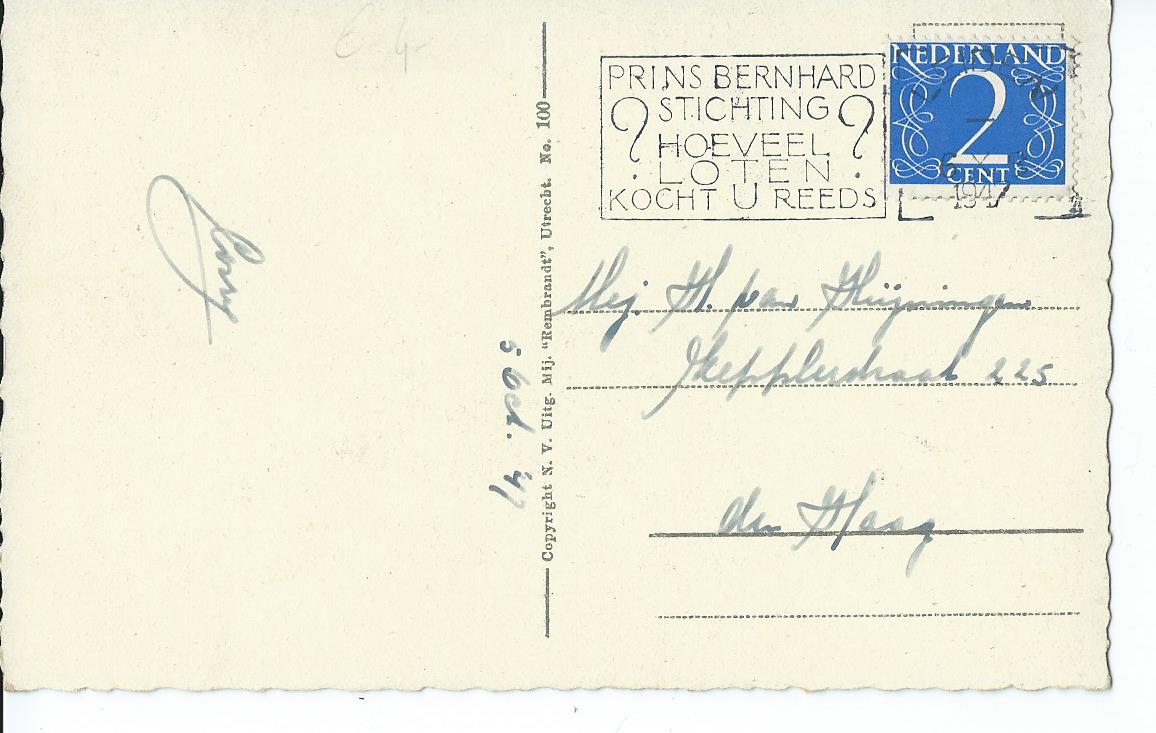 € 4-
PRINS BERNHARD
? STICHTING ?
HOEVEEL
LOTEN
KOCHT U REEDS
NEDERLAND
2
CENT
6 X
1947
Corry
5 Oct. '47
Copyright N. V. Uitg. Mij. "Rembrandt", Utrecht. No. 100
Mej. H. van Huijningen
Kepplerstraat 225
den Haag